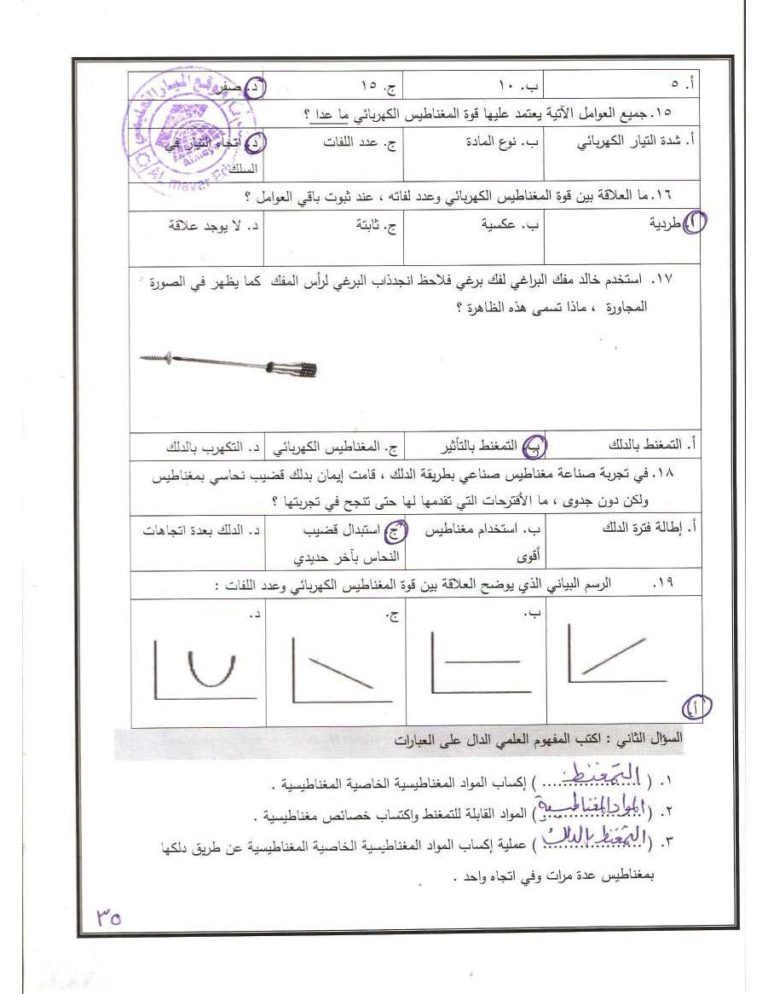 أ. ٥ ب. ١٠ ج. ١٥ د. صفر
١٥. جميع العوامل الآتية يعتمد عليها قوة المغناطيس الكهربائي ما عدا ؟
أ. شدة التيار الكهربائي ب. نوع المادة ج. عدد اللفات د. اتجاه التيار في
السلك
١٦. ما العلاقة بين قوة المغناطيس الكهربائي وعدد لفاته ، عند ثبوت باقي العوامل ؟
أ. طردية ب. عكسية ج. ثابتة د. لا يوجد علاقة
١٧. استخدم خالد مفك البراغي لفك برغي فلاحظ انجدذاب البرغي لرأس المفك كما يظهر في الصورة
المجاورة ، ماذا تسمى هذه الظاهرة ؟
أ. التمغنط بالدلك ب. التمغنط بالتأثير ج. المغناطيس الكهربائي د. التكهرب بالدلك
١٨. في تجربة صناعة مغناطيس صناعي بطريقة الدلك ، قامت إيمان بدلك قضيب نحاسي بمغناطيس
ولكن دون جدوى ، ما الأقترحات التي تقدمها لها حتى تنجح في تجربتها ؟
أ. إطالة فترة الدلك ب. استخدام مغناطيس ج. استبدال قضيب د. الدلك بعدة اتجاهات
أقوى النحاس بآخر حديدي
١٩. الرسم البياني الذي يوضح العلاقة بين قوة المغناطيس الكهربائي وعدد اللفات :
ب. ج. د.
أ.
السؤال الثاني : اكتب المفهوم العلمي الدال على العبارات
١. ( التمغنط ) إكساب المواد المغناطيسية الخاصية المغناطيسية .
٢. ( المواد المغناطيسية ) المواد القابلة للتمغنط واكتساب خصائص مغناطيسية .
٣. ( التمغنط بالدلك ) عملية إكساب المواد المغناطيسية الخاصية المغناطيسية عن طريق دلكها
بمغناطيس عدة مرات وفي اتجاه واحد .
٣٥